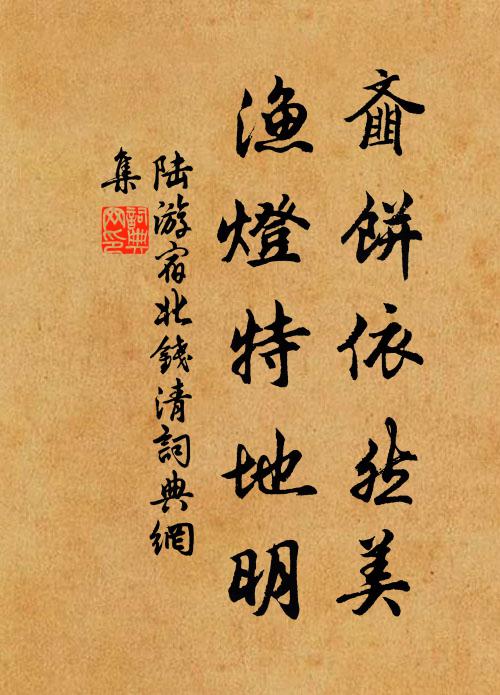 齏餅依然美
漁燈特地明
陸游宿北錢清詞典網
集
詞典
网印